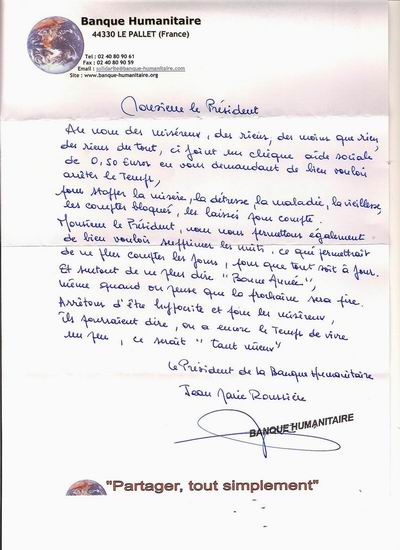 Banque Humanitaire
44330 LE PALLET (France)
Tel : 02 40 80 90 61
Fax : 02 40 80 90 59
Email : solidarite@banque-humanitaire.com
Site : www.banque-humanitaire.org
Monsieur le Président
Au nom des miséreux, des riens, des moins que rien,
des riens du tout, ci joint un chèque aide sociale
de 0,50 Euros en vous demandant de bien vouloir
arrêter le Temps,
pour stopper la misère, la détresse, la maladie, la vieillesse,
les comptes bloqués, les laissés pour compte.
Monsieur le Président, nous nous permettons également
de bien vouloir supprimer les nuits. ce qui permettrait
de ne plus compter les jours, pour que tout soit à jour.
Et surtout de ne plus dire "Bonne Année",
même quand on pense que la prochaine sera pire.
Arrêtons d'être hyppocrite et pour les miséreux,
ils pourraient dire, on a encore le Temps de vivre
un peu, ce serait "tant mieux"
Le Président de la Banque Humanitaire
Jean Marie Roussière
BANQUE HUMANITAIRE
"Partager, tout simplement"